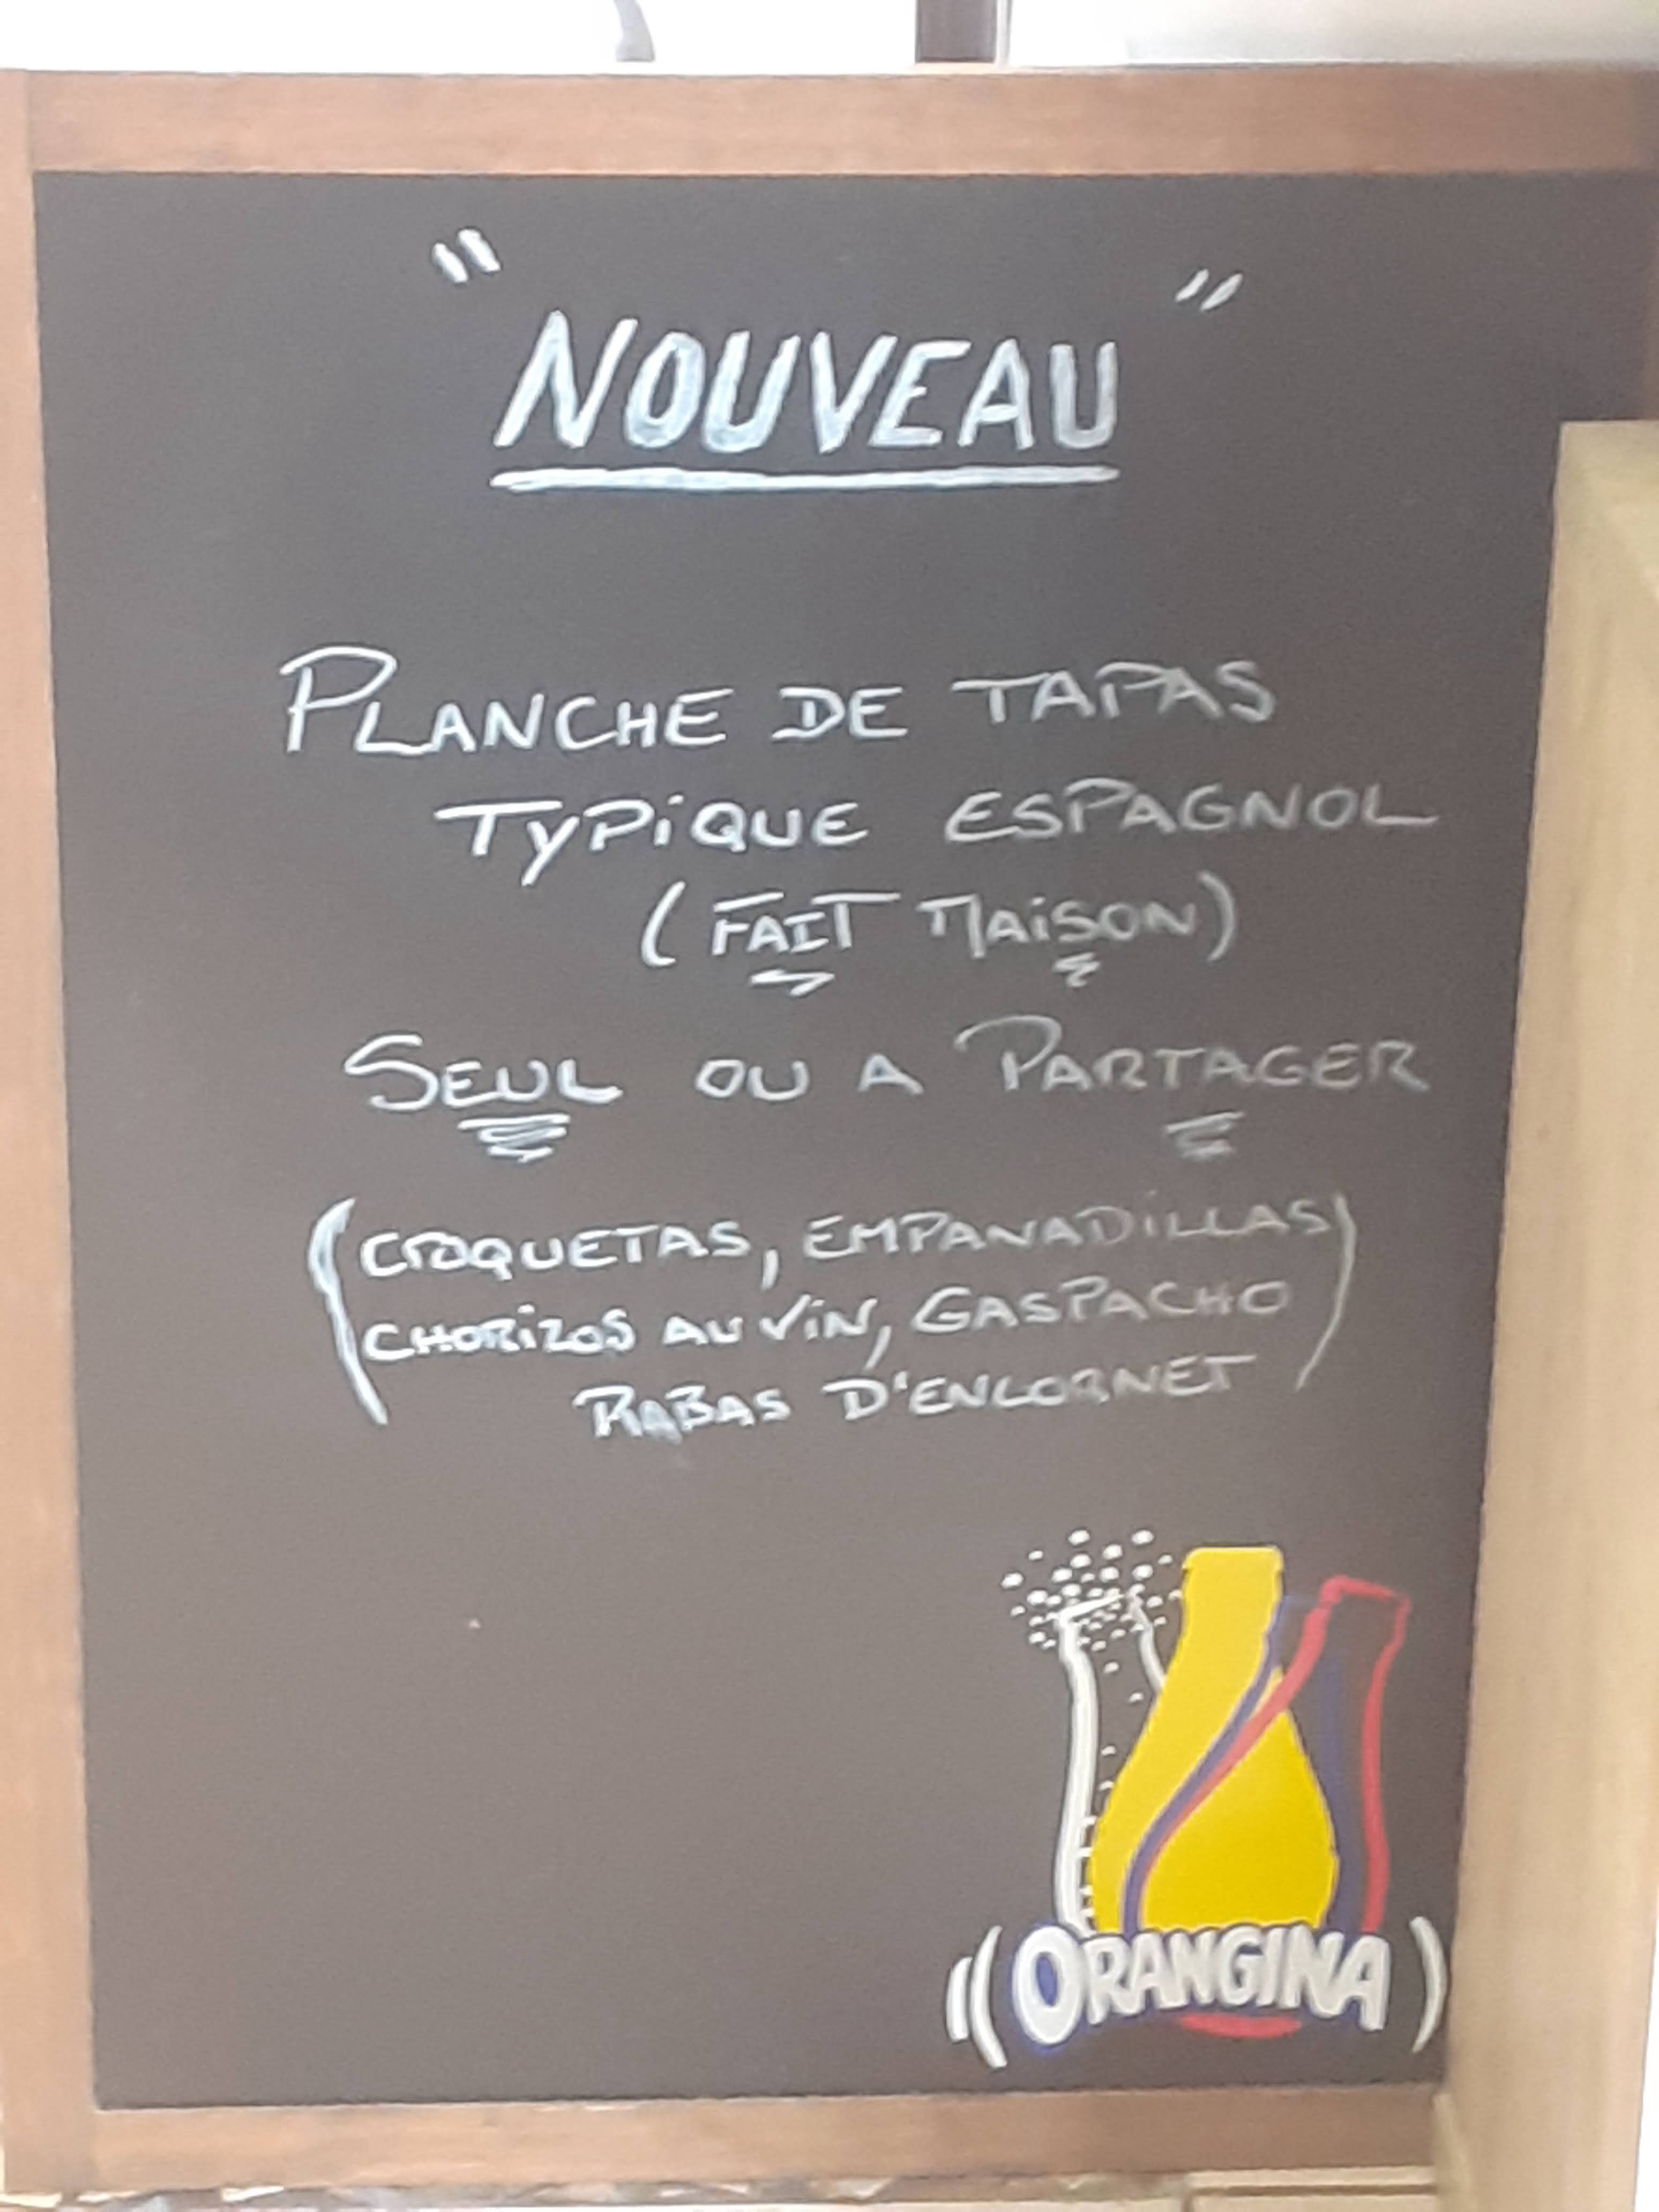 " NOUVEAU "
PLANCHE DE TAPAS
TYPiQUE ESPAGNOL
( FAIT MAiSON)
SEUL OU A PARTAGER
(CROQUETAS, EMPANADiLLAS)
CHORiZOS AU ViN, GASPACHO
RABAS D'ENCORNET
ORANGINA